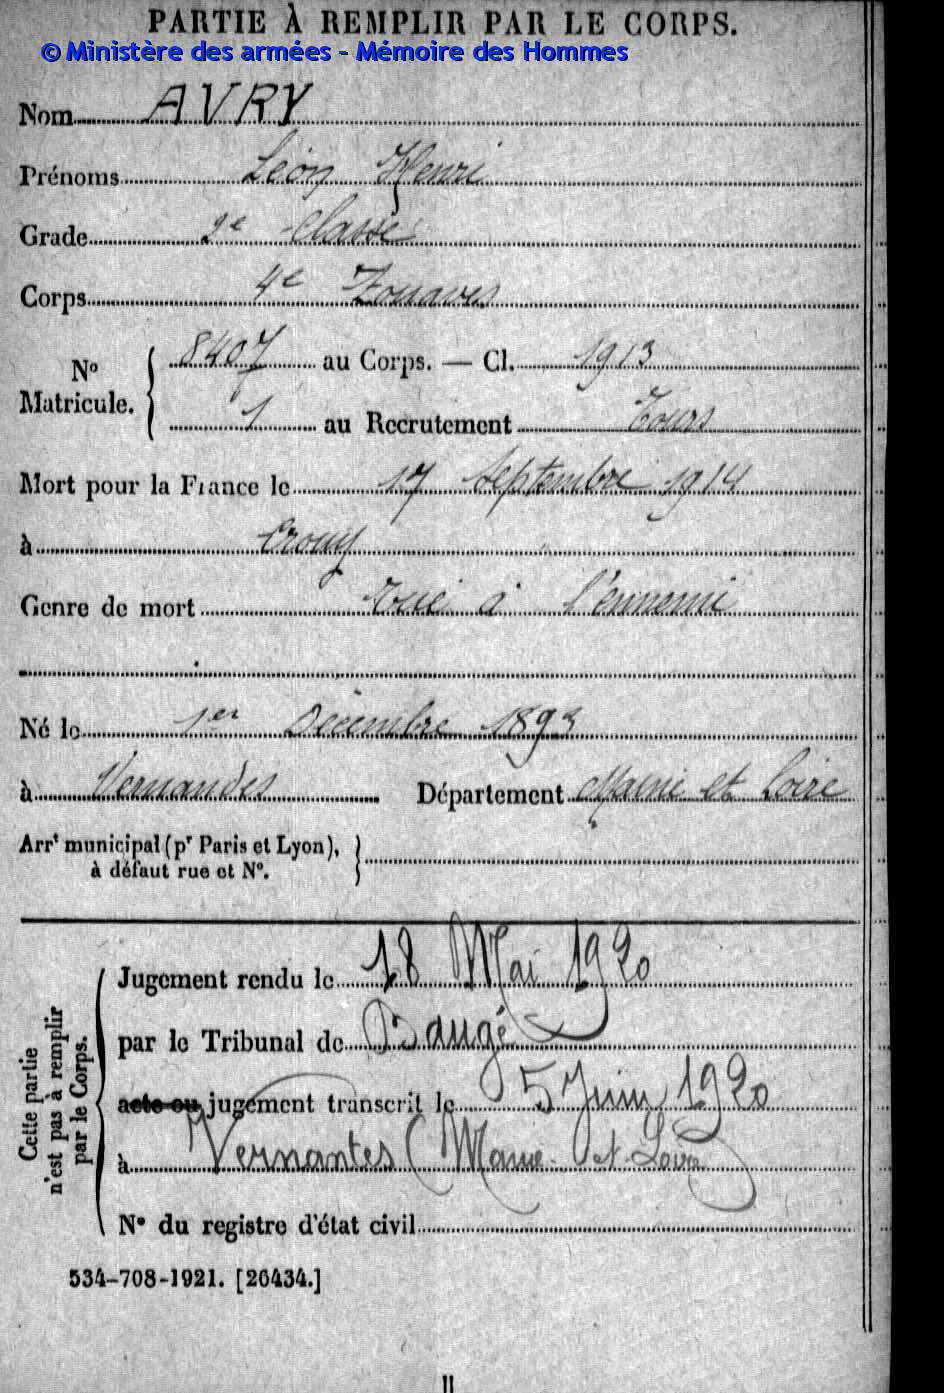 PARTIE À REMPLIR PAR LE CORPS.
© Ministère des armées - Mémoire des Hommes
Nom AVRY
Prénoms Léon Henri
Grade 2e Classe
Corps 4e Zouaves
No Matricule. 8407 au Corps. — Cl. 1913
1 au Recrutement Tours
Mort pour la France le 17 Septembre 1914
à Crouy
Genre de mort Tué à l'ennemi
Né le 1er Décembre 1893
à Vernandes Département Maine et Loire
Arrt municipal (pr Paris et Lyon), à défaut rue et No.
Cette partie n'est pas à remplir par le Corps.
Jugement rendu le 18 Mai 1920
par le Tribunal de Baugé
acte ou jugement transcrit le 5 Juin 1920
à Vernantes (Maine-et-Loire)
No du registre d'état civil
534-708-1921. [26434.]